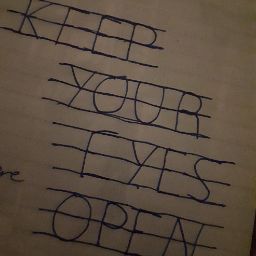 KEEP
YOUR
EYES
OPEN